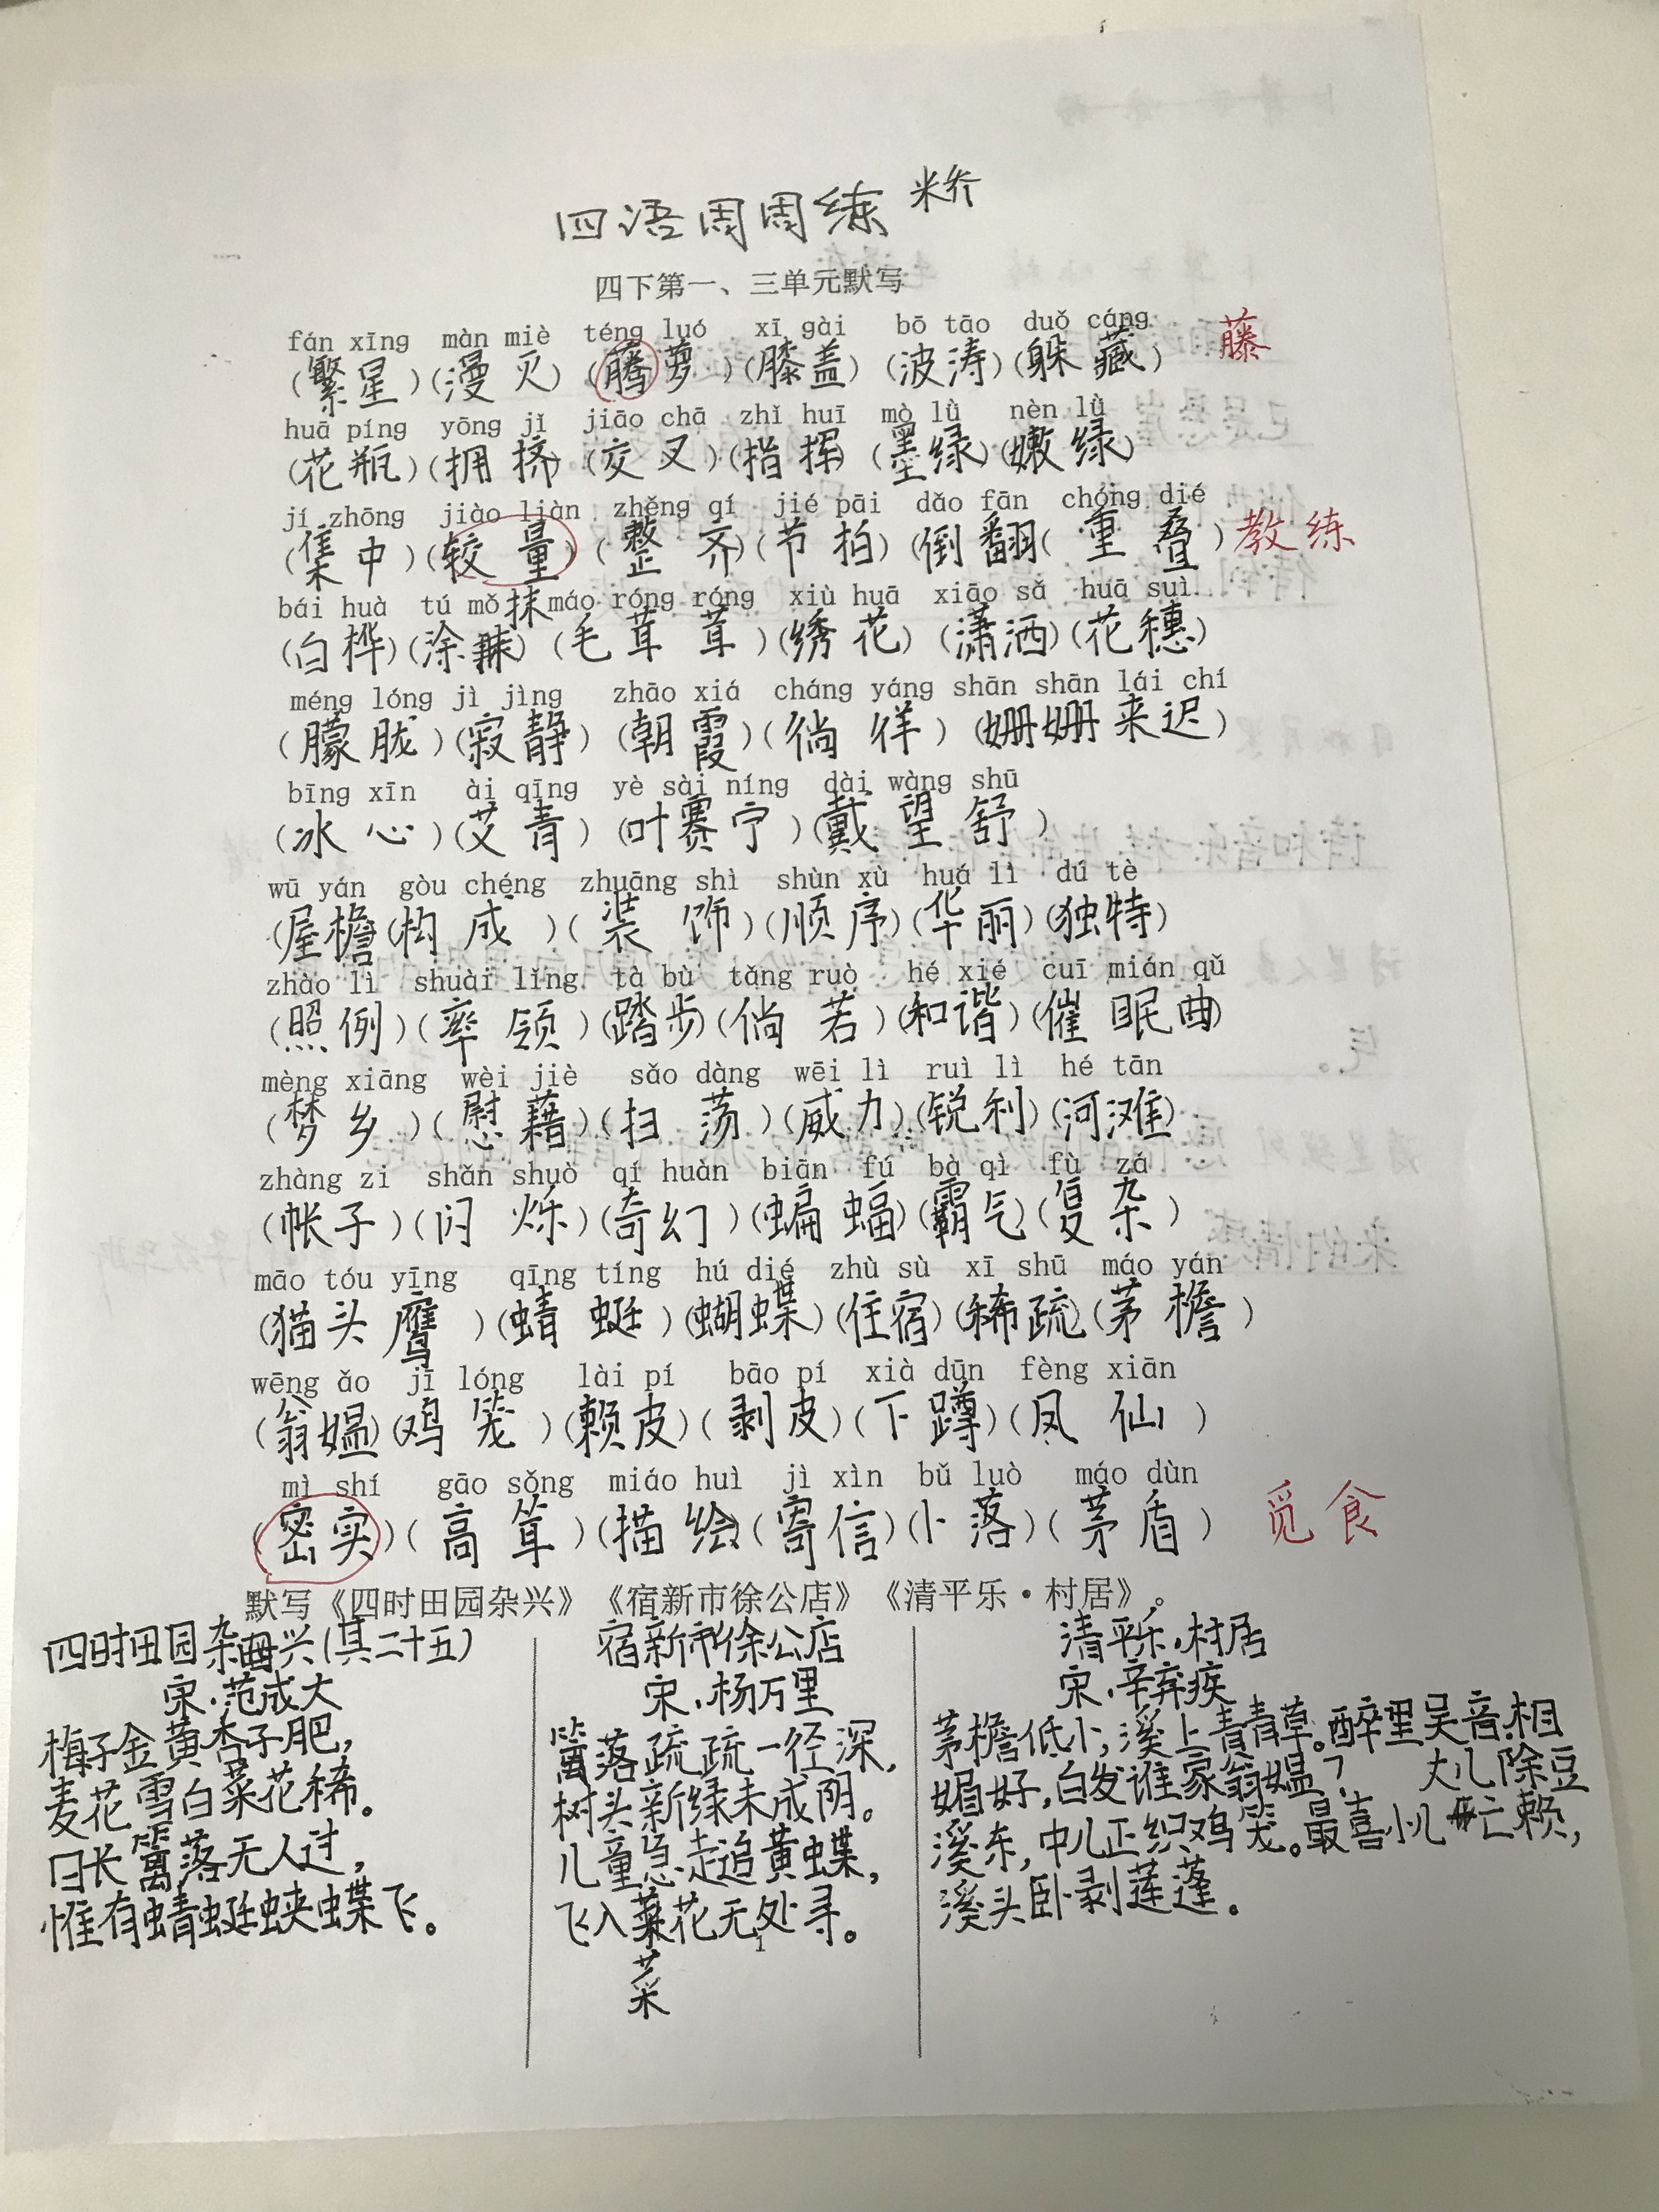 四语周周练
四下第一、三单元默写
fán xīng màn miè téng luó xī gài bō tāo duǒ cáng
(繁星)(漫灭)(腾萝)(膝盖)(波涛)(躲藏) 藤
huā píng yōng jǐ jiāo chā zhǐ huī mò lǜ nèn lǜ
(花瓶)(拥挤)(交叉)(指挥)(墨绿)(嫩绿)
jí zhōng jiào liàn zhěng qí jié pāi dǎo fān chóng dié
(集中)(较量)(整齐)(节拍)(倒翻)(重叠) 教练
bái huà tú mǒ 抹 máo róng róng xiù huā xiāo sǎ huā suì
(白桦)(涂)(毛茸茸)(绣花)(潇洒)(花穗)
méng lóng jì jìng zhāo xiá cháng yáng shān shān lái chí
(朦胧)(寂静)(朝霞)(徜徉)(姗姗来迟)
bīng xīn ài qīng yè sài níng dài wàng shū
(冰心)(艾青)(叶赛宁)(戴望舒)
wū yán gòu chéng zhuāng shì shùn xù huá lì dú tè
(屋檐)(构成)(装饰)(顺序)(华丽)(独特)
zhào lì shuài lǐng tà bù tǎng ruò hé xié cuī mián qǔ
(照例)(率领)(踏步)(倘若)(和谐)(催眠曲)
mèng xiāng wèi jiè sǎo dàng wēi lì ruì lì hé tān
(梦乡)(慰藉)(扫荡)(威力)(锐利)(河滩)
zhàng zi shǎn shuò qí huàn biān fú bà qì fù zá
(帐子)(闪烁)(奇幻)(蝙蝠)(霸气)(复杂)
māo tóu yīng qīng tíng hú dié zhù sù xī shū máo yán
(猫头鹰)(蜻蜓)(蝴蝶)(住宿)(稀疏)(茅檐)
wēng ǎo jī lóng lài pí bāo pí xià dūn fèng xiān
(翁媪)(鸡笼)(赖皮)(剥皮)(下蹲)(凤仙)
mì shí gāo sǒng miáo huì jì xìn bǔ luò máo dùn
(密实)(高耸)(描绘)(寄信)(卜落)(茅盾) 觅食
默写《四时田园杂兴》《宿新市徐公店》《清平乐·村居》。
四时田园杂兴(其二十五)
宋·范成大
梅子金黄杏子肥,
麦花雪白菜花稀。
日长篱落无人过,
惟有蜻蜓蛱蝶飞。
宿新市徐公店
宋·杨万里
篱落疏疏一径深,
树头新绿未成阴。
儿童急走追黄蝶,
飞入菜花无处寻。
菜
清平乐·村居
宋·辛弃疾
茅檐低小,溪上青青草。醉里吴音相
媚好,白发谁家翁媪? 大儿除豆
溪东,中儿正织鸡笼。最喜小儿亡赖,
溪头卧剥莲蓬。